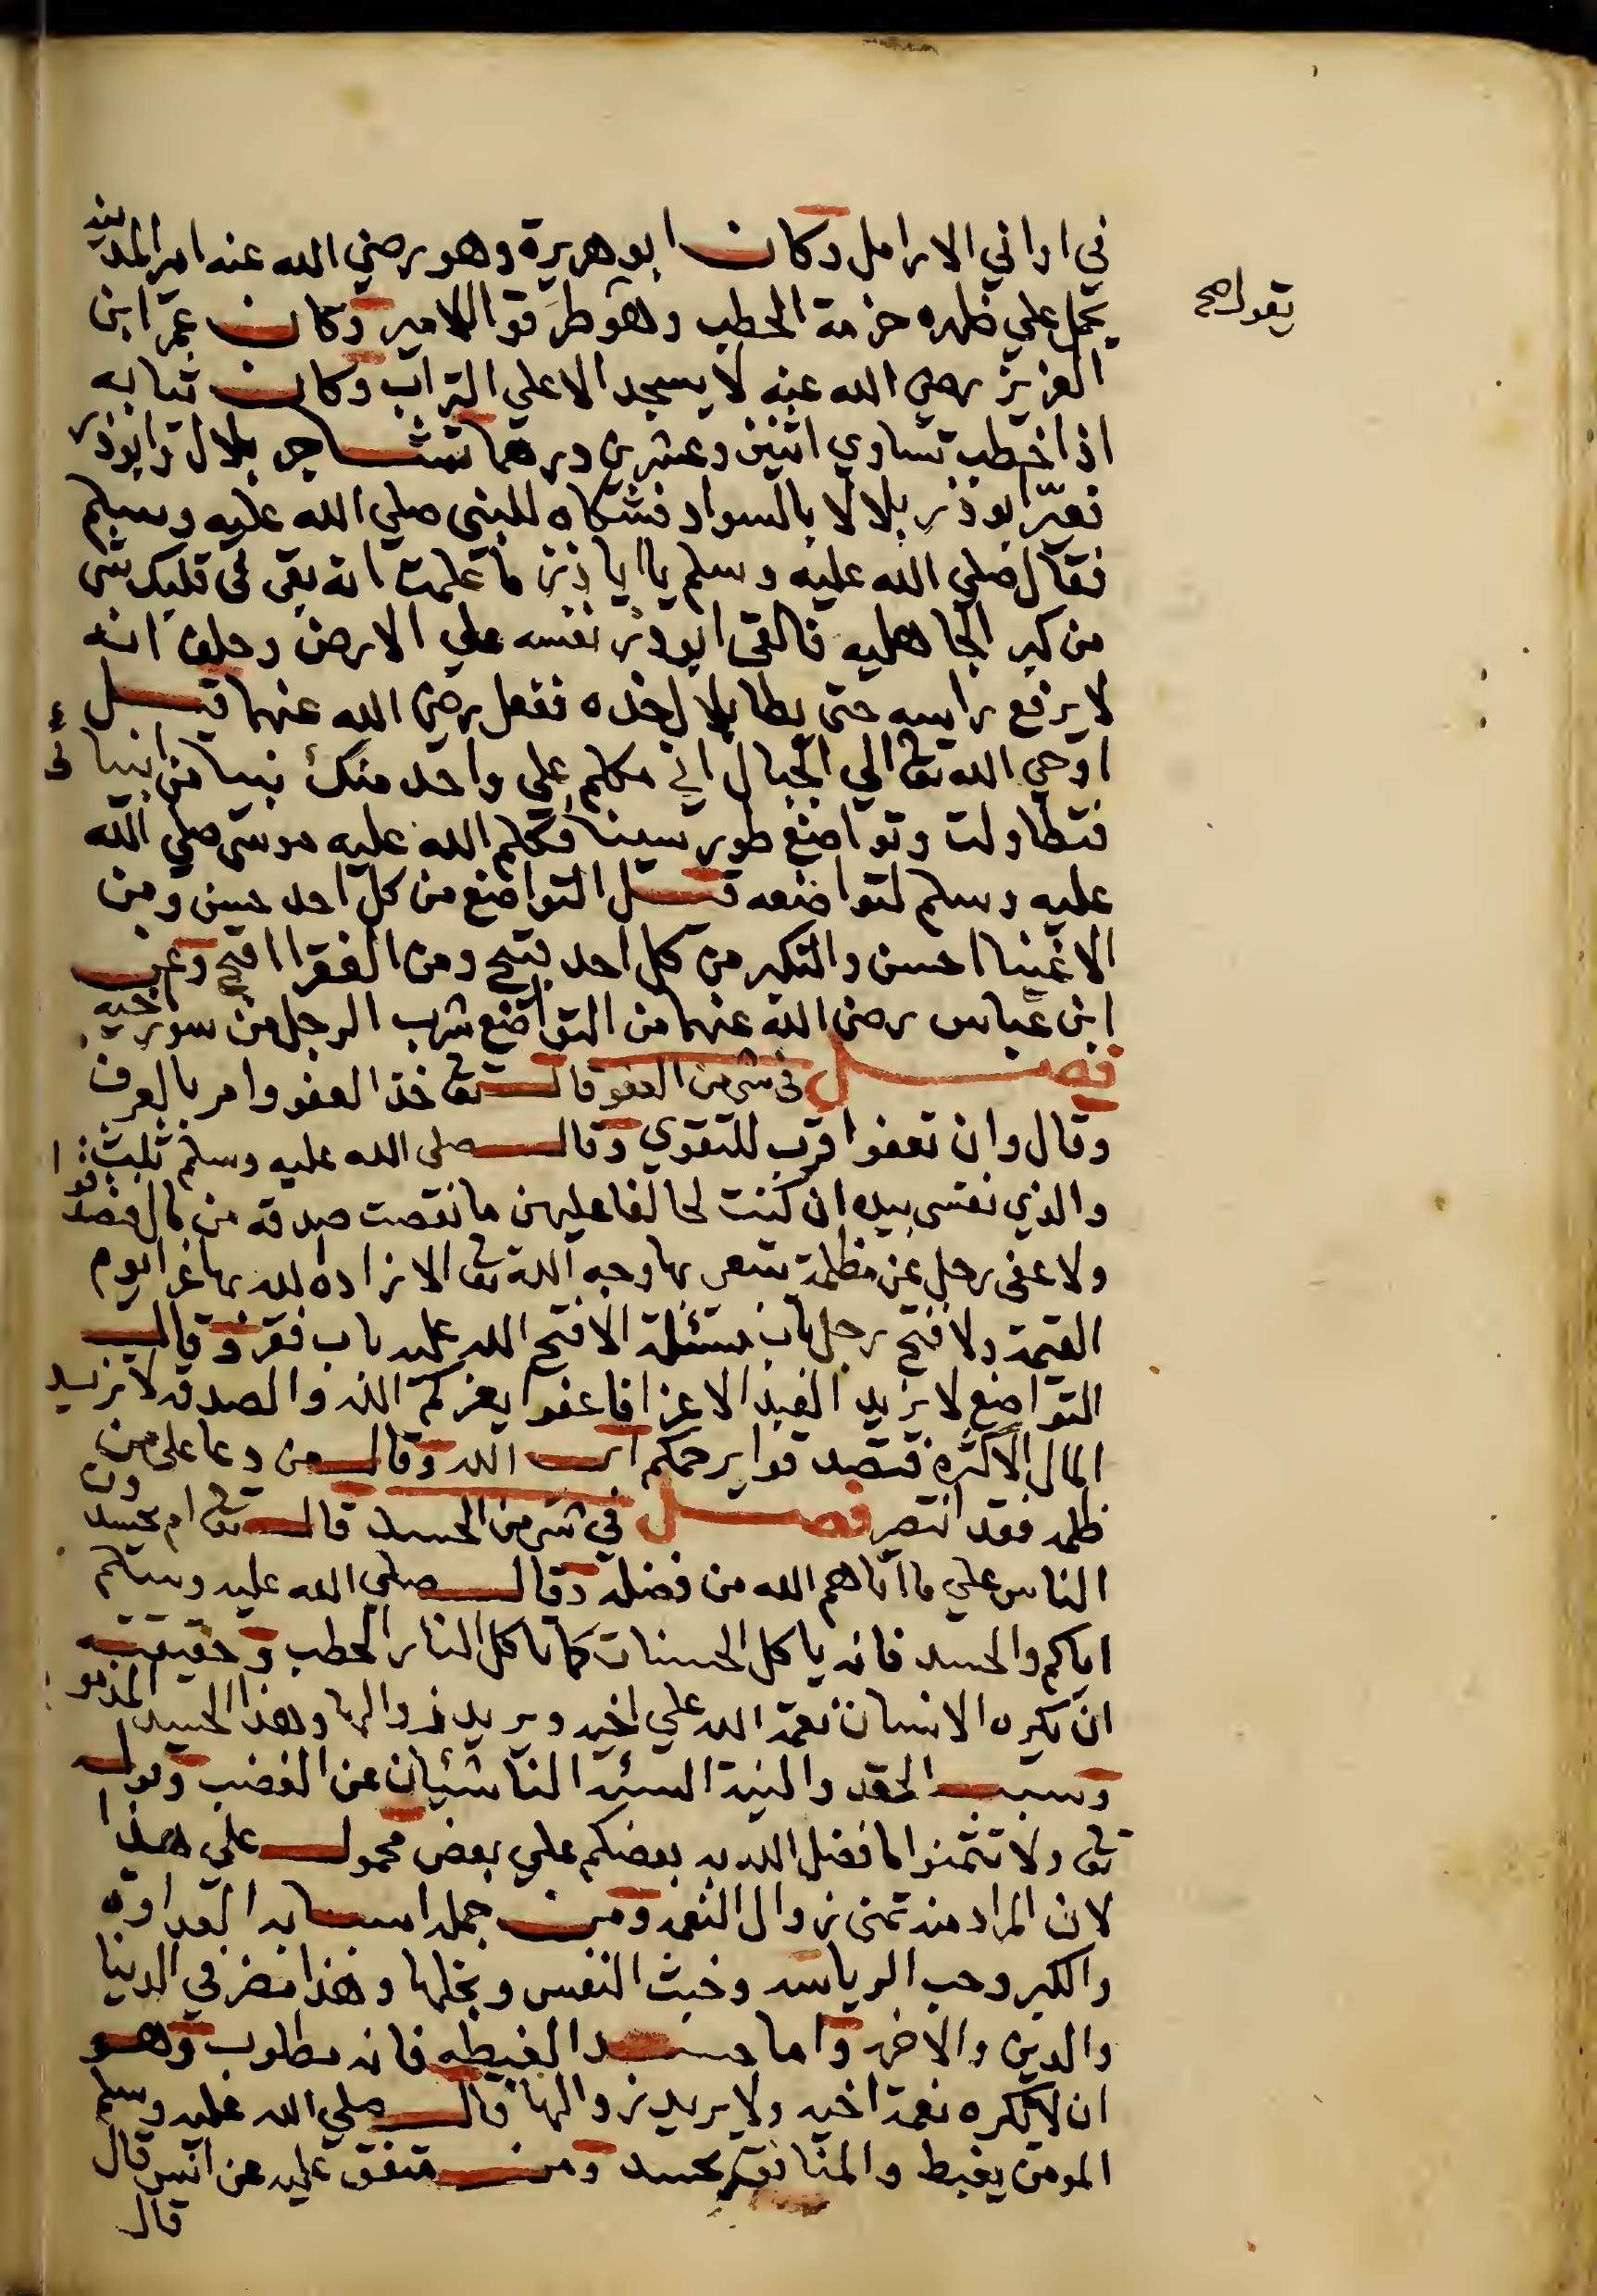 في اواني الارامل وكان ابو هريرة وهو رضي الله عنه امير المدينه
يحمل علي ظهره حزمة الحطب وهو طرقوا للامير وكان عمر ابن
يقول صح
العزيز رضي الله عنه لا يسجد الا علي التراب وكان ثيابه
اذا خطب تساوي اثنين وعشرين درهما تشاجر بلال وابوذر
فعيّر ابو ذر بلالا بالسواد فشكاه للنبى صلي الله عليه وسلم
فقال صلي الله عليه وسلم يا ابا ذر ما علمت انه بقى فى قلبك شى
من كبر الجاهليه فالقى ابوذر نفسه علي الارض وحلف انه
لا يرفع راسه حتى يطا بلال خده ففعل رضى الله عنهما قيل
اوحي الله تعا الي الجبال اني مكلم علي واحد منك نبيا من انبيائى
فتطاولت وتواضع طور سينا فكلم الله عليه موسى صلي الله
عليه وسلم لتواضعه قيل التواضع من كل احد حسن ومن
الاغنيا احسن والتكبر من كل احد قبيح ومن الفقرا اقبح وعن
ابن عباس رضى الله عنهما من التواضع شرب الرجل من سور اخيه
فصل فى شى من العفو قال تعا خذ العفو وامر بالعرف
وقال وان تعفوا اقرب للتقوي وقال صلى الله عليه وسلم ثلث
والذي نفسى بيده ان كنت لحالفا عليهن ما نقصت صدقه من مال فتصدقوا
ولا عفى رجل عن مظلمة يبتغى بها وجه الله تعا الا زاده الله بها عزا يوم
القيمة ولا فتح رجل باب مسئلة الا فتح الله عليه باب فقر وقال
التواضع لا يزيد العبد الا عزا فاعفوا يعزكم الله والصدقه لا تزيد
المال الا كثرة فتصدقوا يرحمكم الله وقال من دعا على من
ظلمه فقد انتصر فصل في شى من الحسد قال تعا ام يحسدون
الناس علي ما اتاهم الله من فضله وقال صلي الله عليه وسلم
اياكم والحسد فانه ياكل الحسنات كما تاكل النار الحطب وحقيقته
ان يكره الانسان نعمة الله علي اخيه ويريد زوالها وهذا الحسد المذموم
وسبب الحقد والنية السيئه الناشئيان عن الغضب وقوله
تعا ولا تتمنوا ما فضل الله به بعضكم علي بعض محمول علي هذا
لان المراد منه تمنى زوال النعمه ومن جملة اسبابه العداوة
والكبر وحب الرياسه وخبث النفس وبخلها وهذا مضر في الدنيا
والدين والاخره واما حسد الغبطه فانه مطلوب وهو
ان لا يكره نعمة اخيه ولا يريد زوالها قال صلي الله عليه وسلم
المومن يغبط والمنافق يحسد ومن متفق عليه عن انس قال
قال